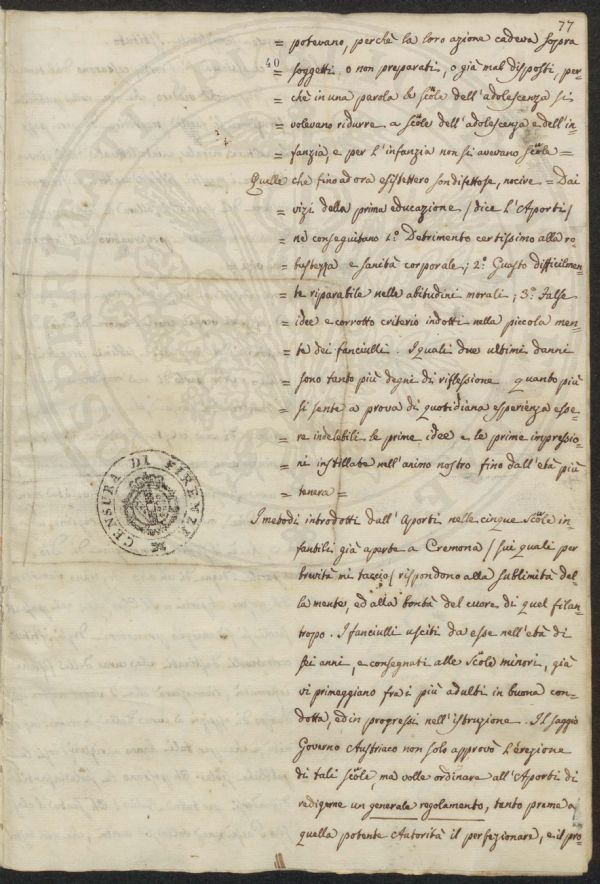 77
= potevano, perchè la loro azione cadeva sopra
40
= soggetti o non preparati, o già mal disposti, per-
= chè in una parola le scuole dell'adolescenza si
= volevano ridurre a scuole dell'adolescenza e dell'in-
= fanzia, e per l'infanzia non si avevano scuole =
Quelle che fino ad ora esistettero son difettose, nocive = Dai
= vizi della prima educazione / dice l'Aporti /
= ne conseguitano 1.º Detrimento certissimo alla ro
= bustezza e sanità corporale; 2.º Guasto difficilmen-
= te riparabile nelle abitudini morali; 3.º False
= idee e corrotto criterio indotti nella piccola men-
= te dei fanciulli. I quali due ultimi danni
= sono tanto più degni di riflessione quanto più
= si sente a prova di quotidiana esperienza esse-
= re indelebili le prime idee e le prime impressio-
= ni instillate nell'animo nostro fino dall'età più
= tenera =
CENSURA DI FIRENZE
I metodi introdotti dall'Aporti nelle cinque Scuole in
fantili già aperte a Cremona / sui quali per
brevità mi taccio / rispondono alla sublimità del
la mente, ed alla bontà del cuore di quel filan-
tropo. I fanciulli usciti da esse nell'età di
sei anni, e consegnati alle Scuole minori, già
vi primeggiano fra i più adulti in buona con-
dotta, ed in progressi nell'istruzione. Il saggio
Governo Austriaco non solo approvò l'erezione
di tali scuole, ma volle ordinare all'Aporti di
redigerne un generale regolamento, tanto preme a
quella potente Autorità il perfezionare, e il pro-